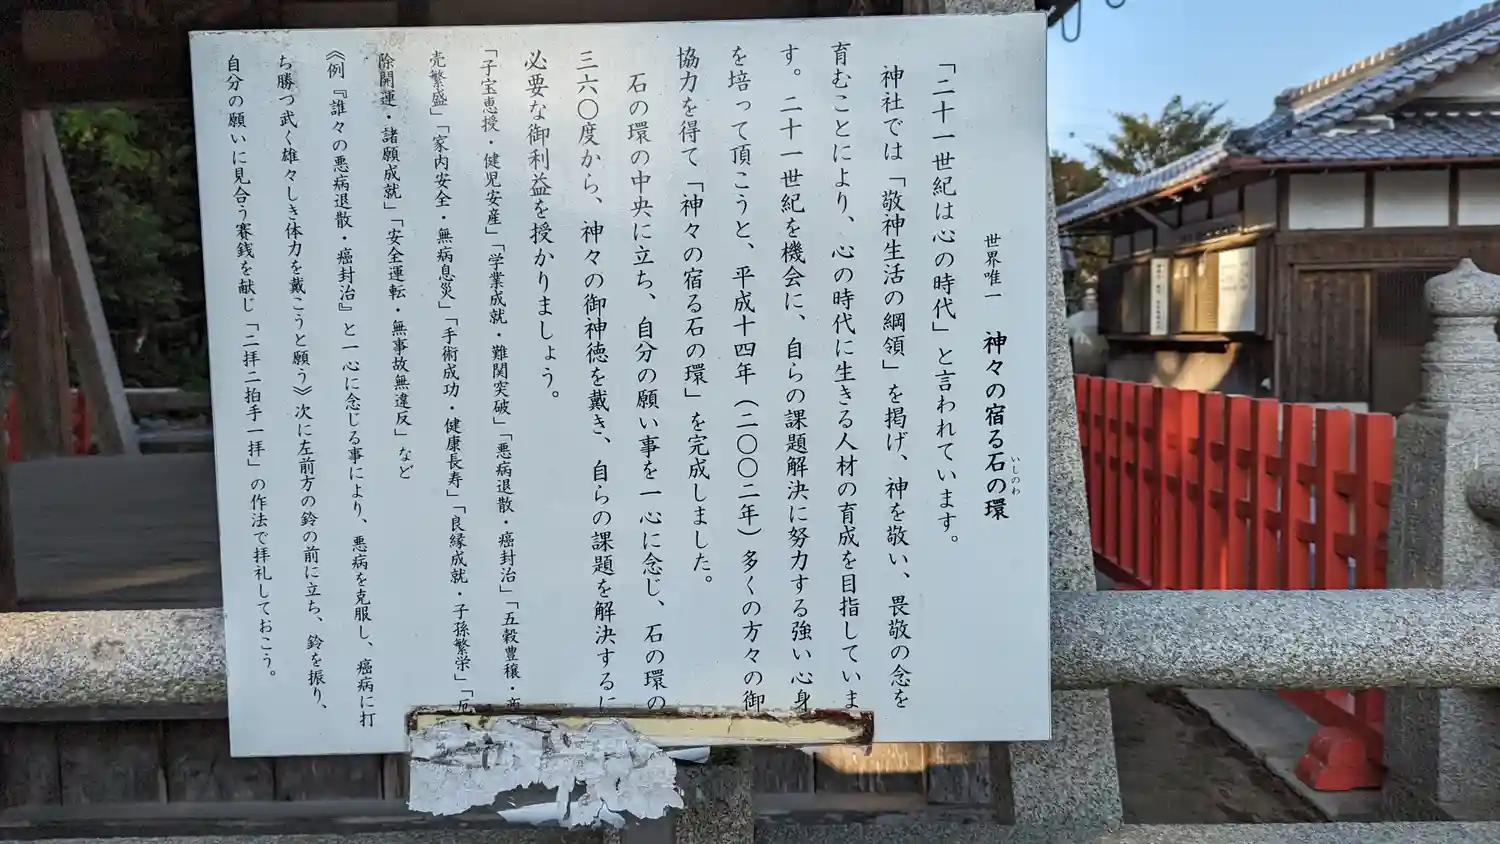 世界唯一 神々の宿る石の環
いしのわ
「二十一世紀は心の時代」と言われています。
神社では「敬神生活の綱領」を掲げ、神を敬い、畏敬の念を
育むことにより、心の時代に生きる人材の育成を目指していま
す。二十一世紀を機会に、自らの課題解決に努力する強い心身
を培って頂こうと、平成十四年（二〇〇二年）多くの方々の御
協力を得て「神々の宿る石の環」を完成しました。
石の環の中央に立ち、自分の願い事を一心に念じ、石の環の
三六〇度から、神々の御神徳を戴き、自らの課題を解決するに
必要な御利益を授かりましょう。
「子宝恵授・健児安産」「学業成就・難関突破」「悪病退散・癌封治」「五穀豊穣・商
売繁盛」「家内安全・無病息災」「手術成功・健康長寿」「良縁成就・子孫繁栄」「厄
除開運・諸願成就」「安全運転・無事故無違反」など
《例『誰々の悪病退散・癌封治』と一心に念じる事により、悪病を克服し、癌病に打
ち勝つ武く雄々しき体力を戴こうと願う》次に左前方の鈴の前に立ち、鈴を振り、
自分の願いに見合う賽銭を献じ「二拝二拍手一拝」の作法で拝礼しておこう。